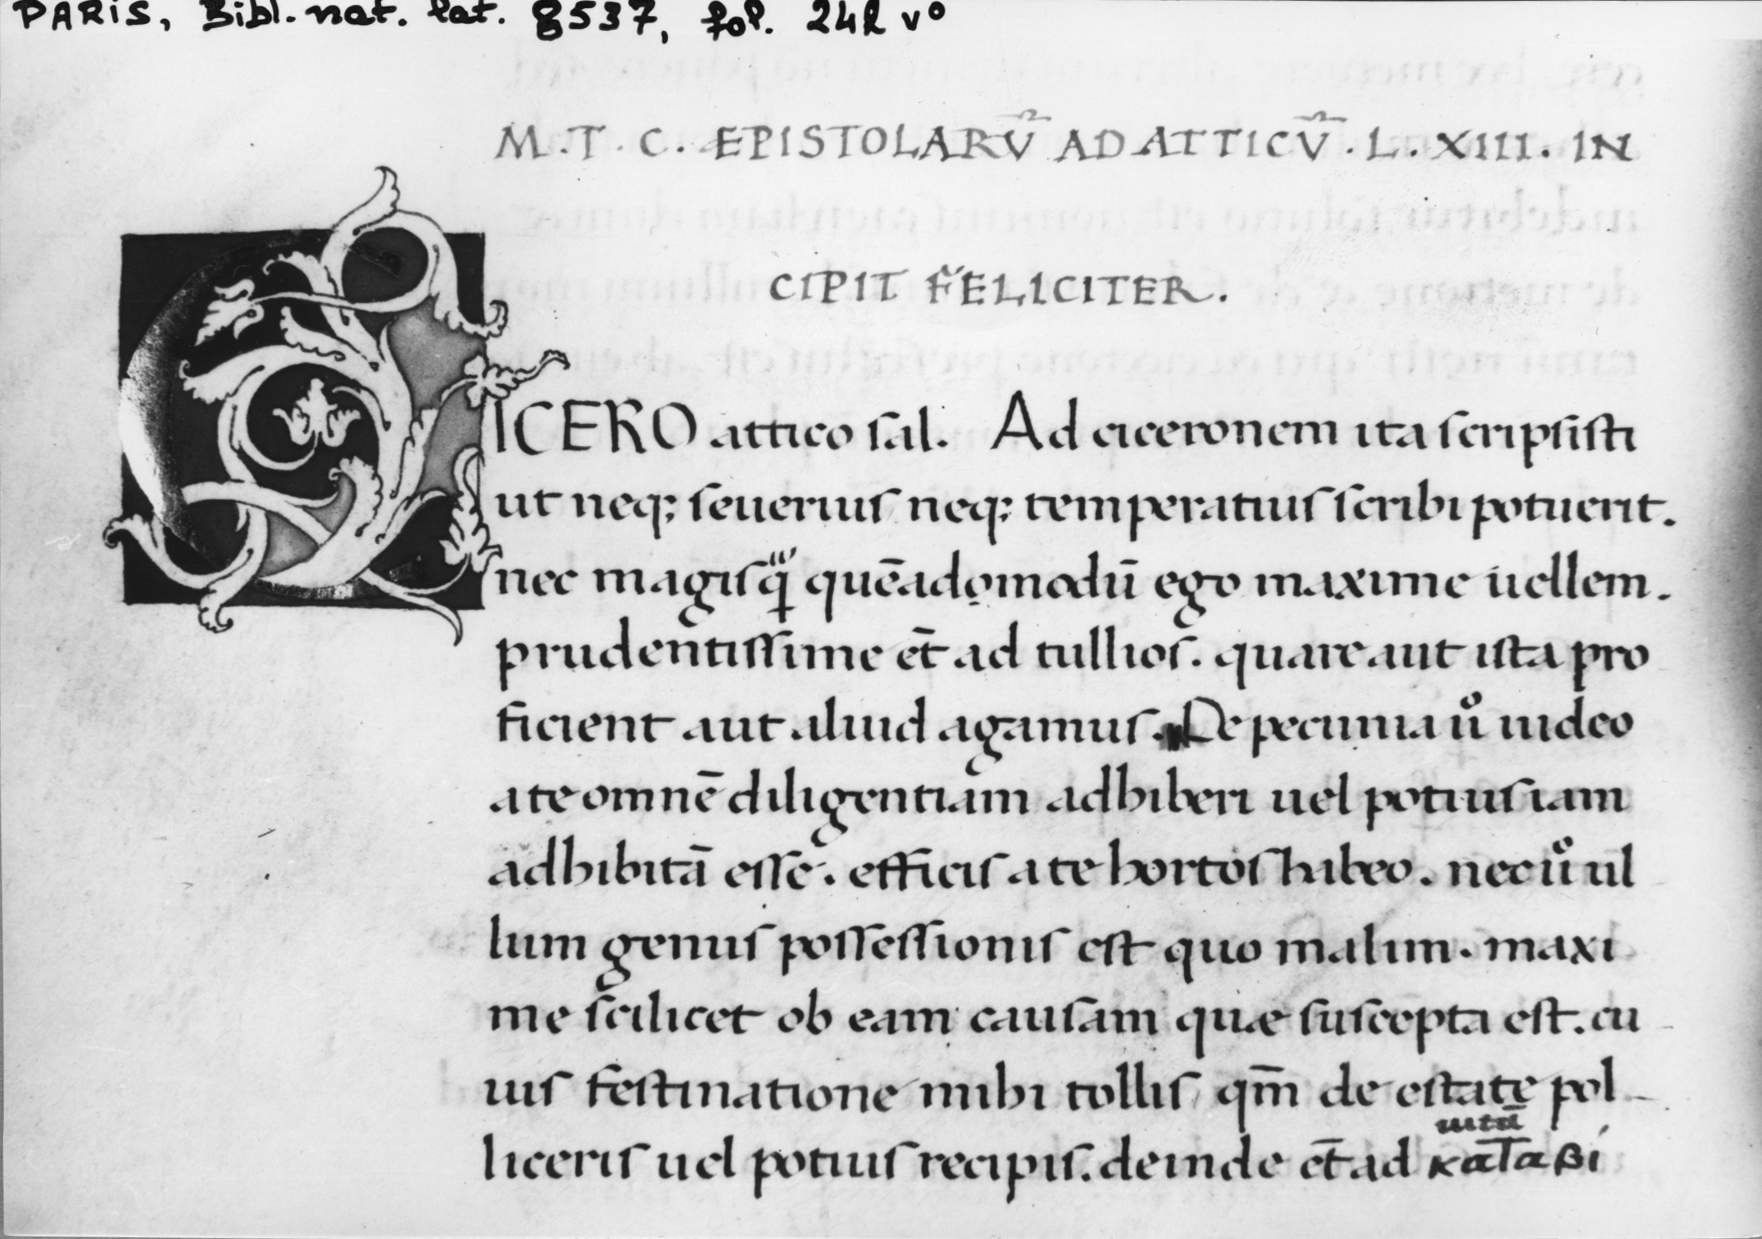 PARIS, Bibl. nat. lat. 8537, fol. 242 vº
M . T . C . EPISTOLARṼ AD ATTICṼ . L . XIII . IN
CIPIT FELICITER .
CICERO attico sal. Ad ciceronem ita scripsisti
ut neq; seuerius neq; temperatius scribi potuerit.
nec magis quẽadmodū ego maxime uellem.
prudentissime et̄ ad tullios. quare aut ista pro
ficient aut aliud agamus. De pecunia uͦ uideo
a te omnē diligentiam adhiberi uel potius iam
adhibitā esse. efficis a te hortos habeo. nec uͦ ul
lum genus possessionis est quo malim. maxi
me scilicet ob eam causam quae suscepta est. cu
ius festinatione mihi tollis qm̄ de estate pol
liceris uel potius recipis. deinde et̄ ad καταβί